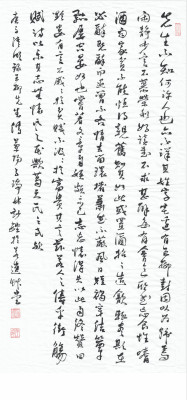 先生不知何許人也亦不詳其姓字宅邊有五柳樹因以為號焉
閑靜少言不慕榮利好讀書不求甚解每有會意便欣然忘食性嗜
酒家貧不能恆得親舊知其如此或置酒招之造飲輒盡期在
必醉既醉而退曾不吝情去留環堵蕭然不蔽風日短褐穿結簞
瓢屢空晏如也嘗著文章自娛頗示己志忘懷得失以此自終贊曰
黔婁有言不戚戚於貧賤不汲汲於富貴其言茲若人之儔乎銜觴
賦詩以樂其志無懷氏之民歟葛天氏之民歟
五柳先生傳